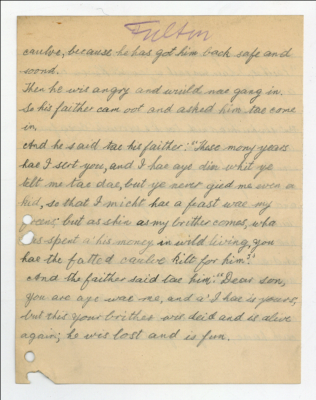 Fulton
caulve, because he has got him back safe and
soond.
Then he wis angry and wuild nae gang in.
So his faither cam oot and asked him tae come
in.
And he said tae his faither: "These mony years
hae I sert you, and I hae aye din whit ye
telt me tae dae, but ye never gied me even a
kid, so that I micht hae a feast wae my
freens; but as shin as my brither comes, wha
es spent a' his money in wild living, you
hae the fatted caulve kilt for him?"
And the faither said tae him: "Dear son,
you are aye wae me, and a' I hae is yours,
but this your brither wis deid and is alive
again; he wis lost and is fun.